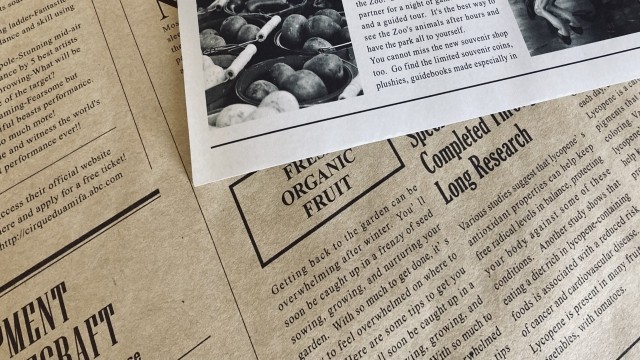 ng ladder-Fantastic
lance and skill using
pole-Stunning mid-air
ance by 5 best artists
rowing-What will be
e of the target?
aming-Fearsome but
iful beasts performance.
so much more!
e and witness the world's
performance ever!!
access their official website
here and apply for a free ticket!
http://cirqueduamifa.abc.com
the Zoo.
partner for a night of
and a guided tour. It's the best way to
see the Zoo's animals after hours and
have the park all to yourself.
You cannot miss the new souvenir shop
too. Go find the limited souvenir coins,
plushies, guidebooks made especially in
FRESH
ORGANIC
FRUIT
Getting back to the garden can be
overwhelming after winter. You'll
soon be caught up in a frenzy of seed
sowing, growing, and nurturing your
garden. With so much to get done, it's
to feel overwhelmed on where to
Here are some tips to get you
ll soon be caught up in a
rowing, growing, and
With so much to
tips
Completed
Long Research
Various studies suggest that lycopene's
antioxidant properties can help keep
free radical levels in balance, protecting
your body against some of these
conditions. Another study shows that
eating a diet rich in lycopene-containing
foods is associated with a reduced
of cancer and cardiovascular disease.
Lycopene is present in many
with tomatoes.
Lycopene is
coloring
pigments